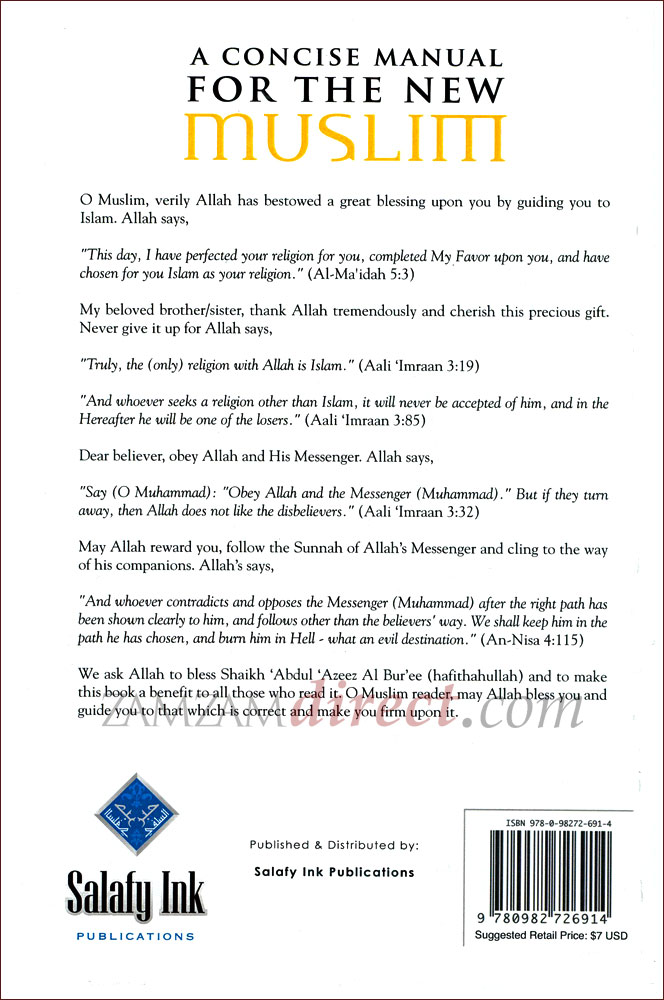 A CONCISE MANUAL
FOR THE NEW
MUSLIM
O Muslim, verily Allah has bestowed a great blessing upon you by guiding you to
Islam. Allah says,
"This day, I have perfected your religion for you, completed My Favor upon you, and have
chosen for you Islam as your religion." (Al-Ma'idah 5:3)
My beloved brother/sister, thank Allah tremendously and cherish this precious gift.
Never give it up for Allah says,
"Truly, the (only) religion with Allah is Islam." (Aali ‘Imraan 3:19)
"And whoever seeks a religion other than Islam, it will never be accepted of him, and in the
Hereafter he will be one of the losers." (Aali ‘Imraan 3:85)
Dear believer, obey Allah and His Messenger. Allah says,
"Say (O Muhammad): "Obey Allah and the Messenger (Muhammad)." But if they turn
away, then Allah does not like the disbelievers." (Aali ‘Imraan 3:32)
May Allah reward you, follow the Sunnah of Allah's Messenger and cling to the way
of his companions. Allah's says,
"And whoever contradicts and opposes the Messenger (Muhammad) after the right path has
been shown clearly to him, and follows other than the believers' way. We shall keep him in the
path he has chosen, and burn him in Hell - what an evil destination." (An-Nisa 4:115)
We ask Allah to bless Shaikh ‘Abdul ‘Azeez Al Bur'ee (hafithahullah) and to make
this book a benefit to all those who read it. O Muslim reader, may Allah bless you and
guide you to that which is correct and make you firm upon it.
ZAMZAMdirect.com
Salafy Ink
PUBLICATIONS
Published & Distributed by:
Salafy Ink Publications
ISBN 978-0-98272-691-4
9 780982 726914
Suggested Retail Price: $7 USD